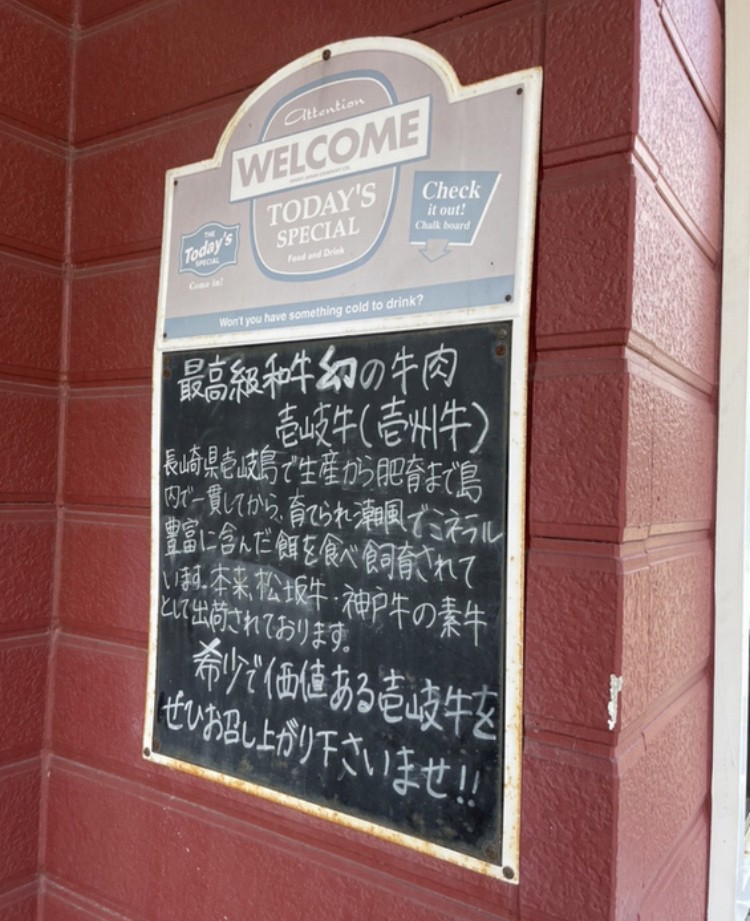 Attention
WELCOME
TODAY'S
SPECIAL
Food and Drink
Check
it out!
Chalk board
THE
Today's
SPECIAL
Come in!
Won't you have something cold to drink?
最高級和牛幻の牛肉
壱岐牛(壱州牛)
長崎県壱岐島で生産から肥育まで島
内で一貫してから、育てられ潮風でミネラル
豊富に含んだ餌を食べ飼育されて
います。本来、松坂牛・神戸牛の素牛
として出荷されております。
希少で価値ある壱岐牛を
ぜひお召し上がり下さいませ!!